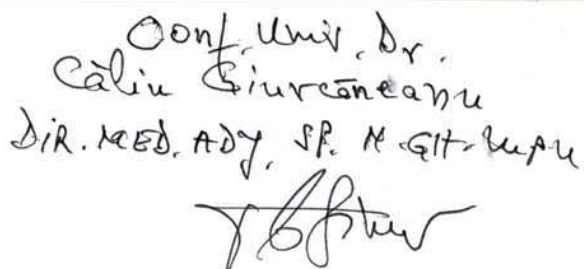 Conf. Univ. Dr.
Călin Giurcăneanu
DIR. MED. ADJ. SP. M.